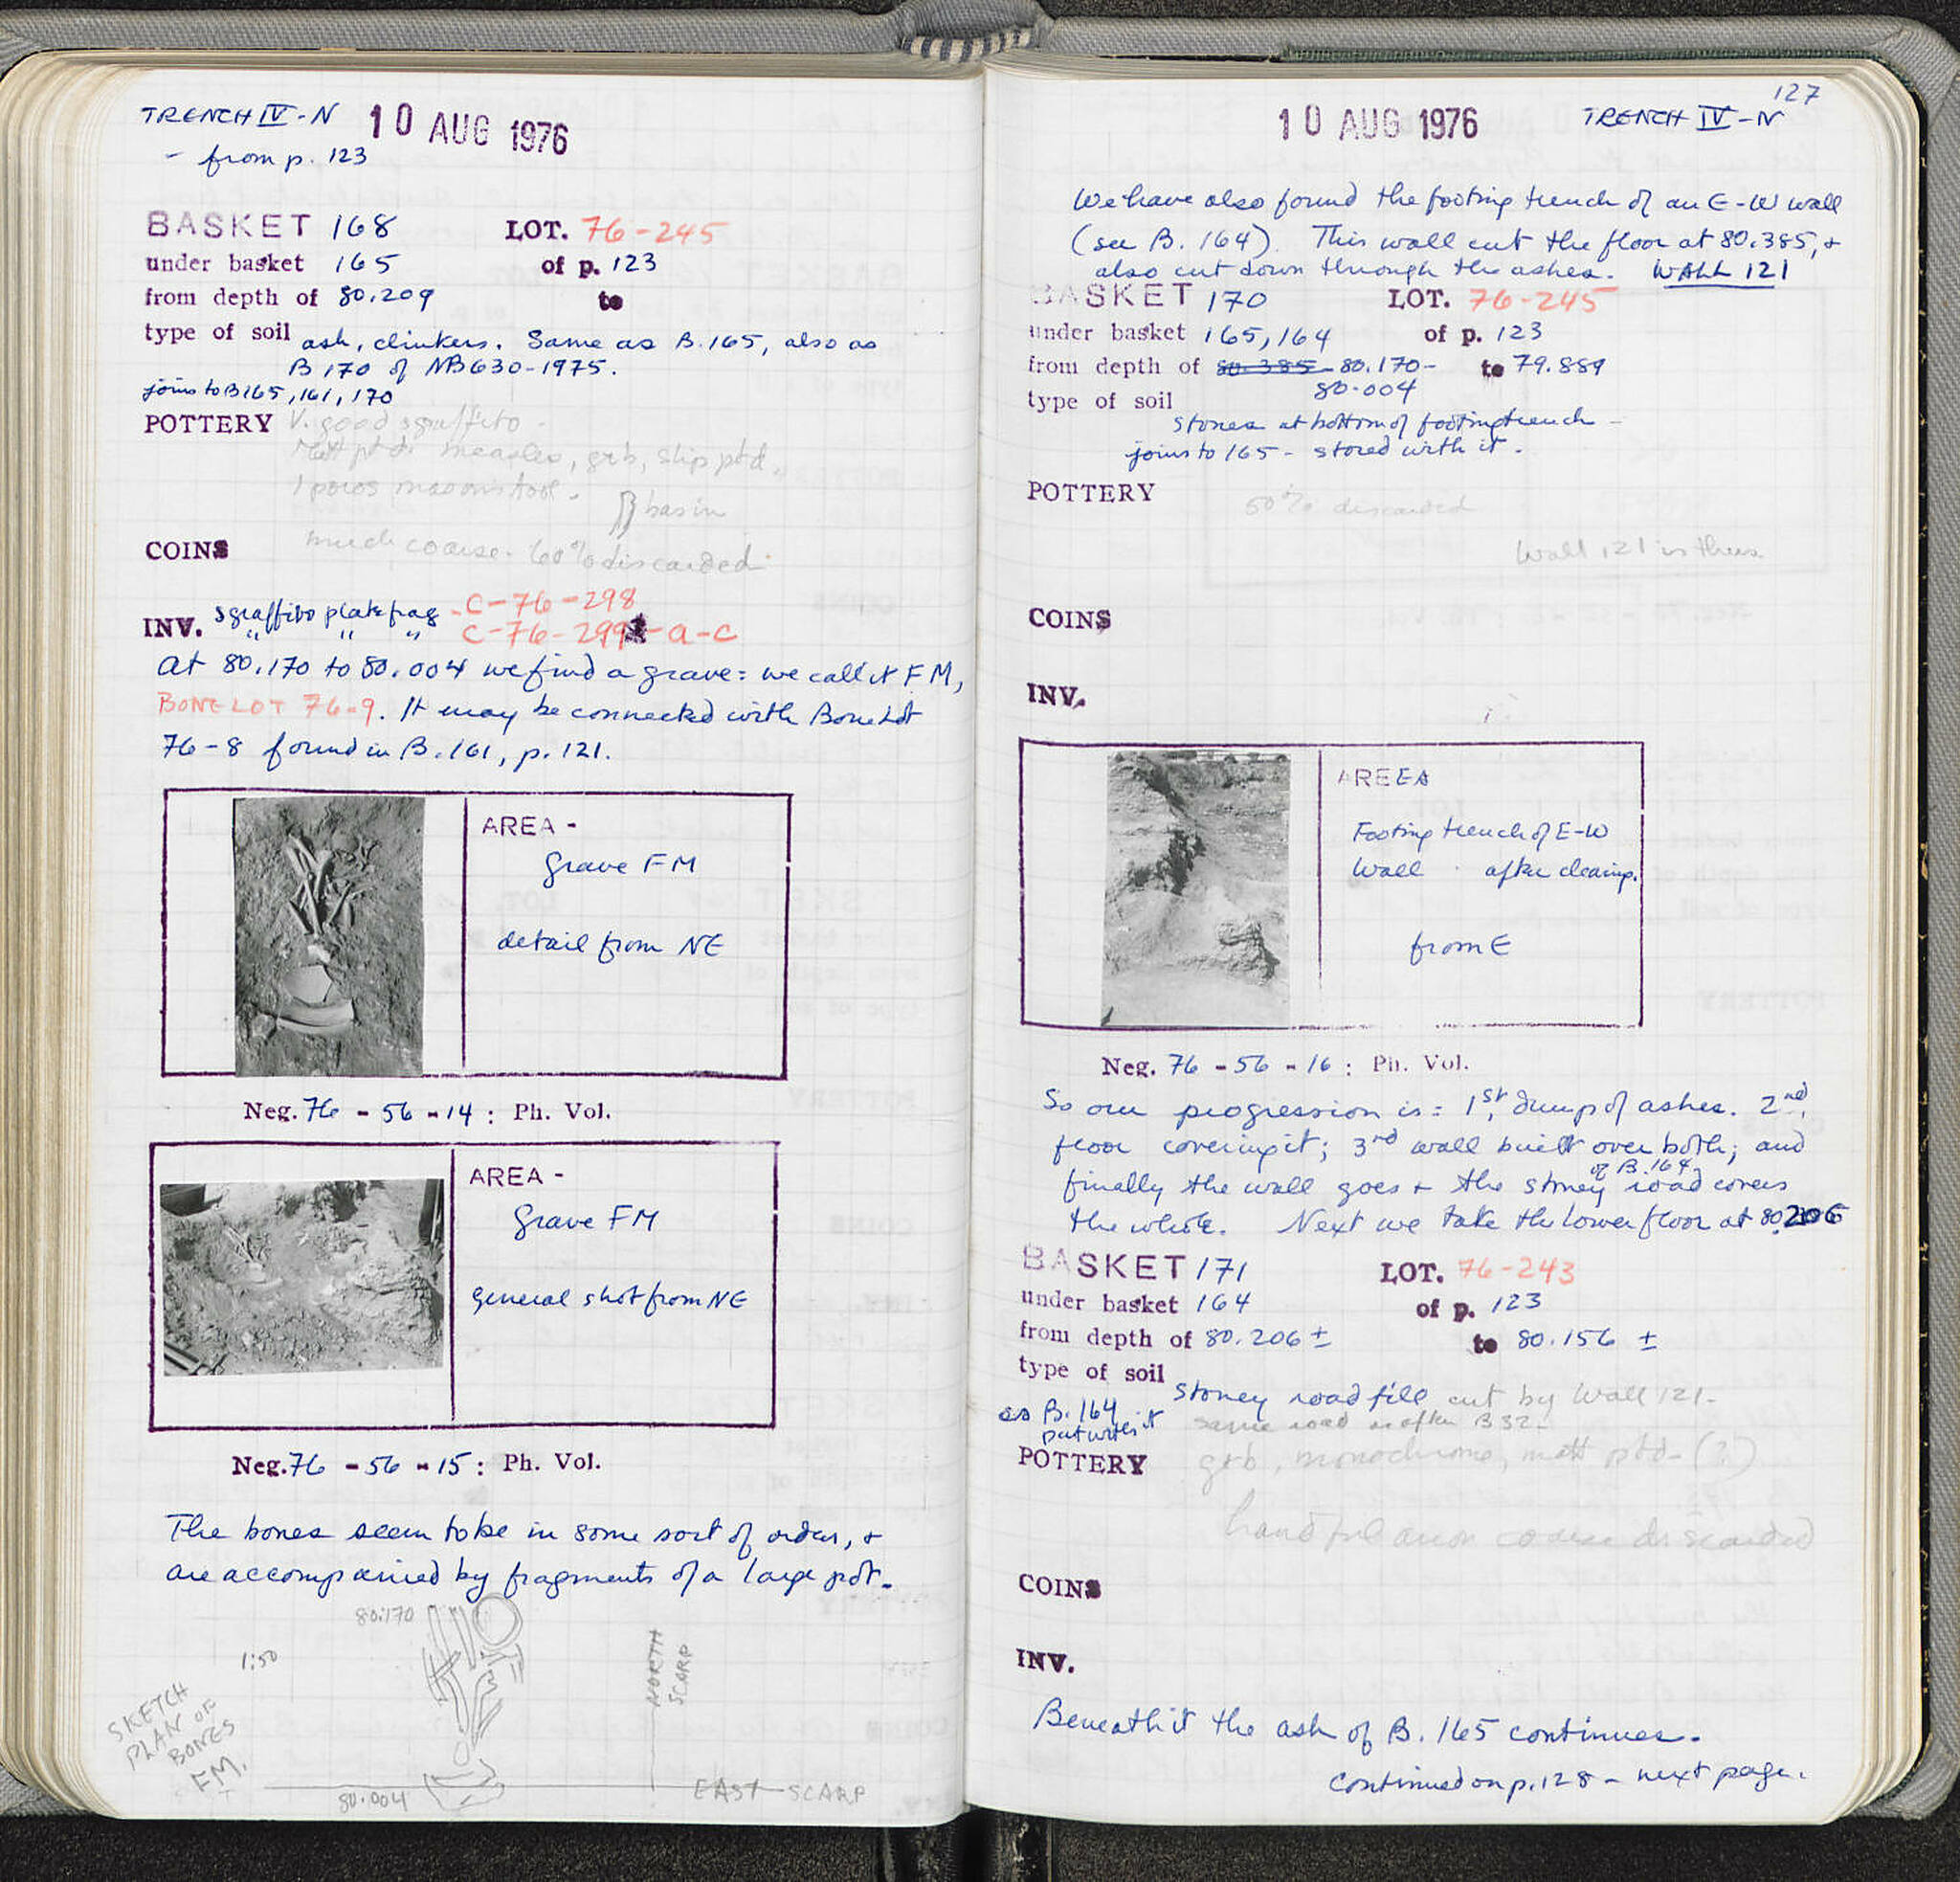 TRENCH IV-N 10 AUG 1976
- from p. 123
BASKET 168 LOT. 76-245
under basket 165 of p. 123
from depth of 80.209 to
type of soil ash, clinkers. Same as B.165, also as
B 170 of NB630-1975.
joins to B165, 161, 170
POTTERY V. good sgraffito -
Matt ptd, measles, grb, slip ptd.
1 poros masons tool.
basin
COINS much coarse - 60% discarded
INV. sgraffito plate frag - C-76-298
" " " C-76-299 - a-c
At 80.170 to 80.004 we find a grave: we call it FM,
BONE LOT 76-9. It may be connected with Bone Lot
76-8 found in B.161, p. 121.
AREA -
Grave FM
detail from NE
Neg. 76 - 56 - 14 : Ph. Vol.
AREA -
Grave FM
general shot from NE
Neg. 76 - 56 - 15 : Ph. Vol.
The bones seem to be in some sort of order, +
are accompanied by fragments of a large pot.
80.170
1:50
NORTH
SCARP
SKETCH
PLAN OF
BONES
FM.
80.004
EAST SCARP
127
10 AUG 1976 TRENCH IV-N
We have also found the footing trench of an E-W wall
(see B. 164). This wall cut the floor at 80.385, +
also cut down through the ashes. WALL 121
BASKET 170 LOT. 76-245
under basket 165, 164 of p. 123
from depth of 80.385 - 80.170- to 79.889
80.004
type of soil
stones at bottom of footing trench -
joins to 165 - stored with it.
POTTERY
50% discarded
Wall 121 is thus
COINS
INV.
AREEA
Footing trench of E-W
Wall after cleaning.
from E
Neg. 76 - 56 - 16 : Ph. Vol.
So our progression is: 1st, dump of ashes. 2nd,
floor covering it; 3rd wall built over both; and
of B.164
finally the wall goes + the stoney road covers
the whole. Next we take the lower floor at 80.206
BASKET 171 LOT. 76-243
under basket 164 of p. 123
from depth of 80.206 ± to 80.156 ±
type of soil
stoney road fill cut by Wall 121-
as B. 164
put with it same road as after B 32.
POTTERY grb, monochrome, matt ptd - (?)
handful coarse discarded
COINS
INV.
Beneath it the ash of B. 165 continues.
Continued on p. 128 - next page.